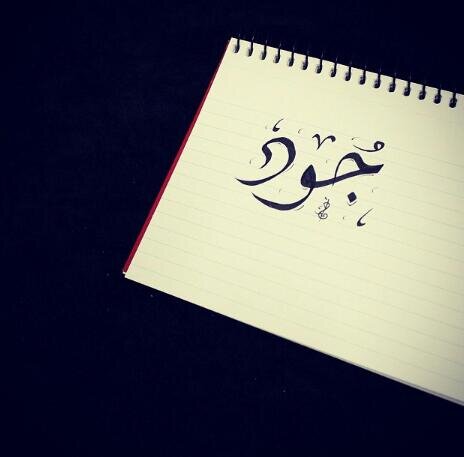 جُود